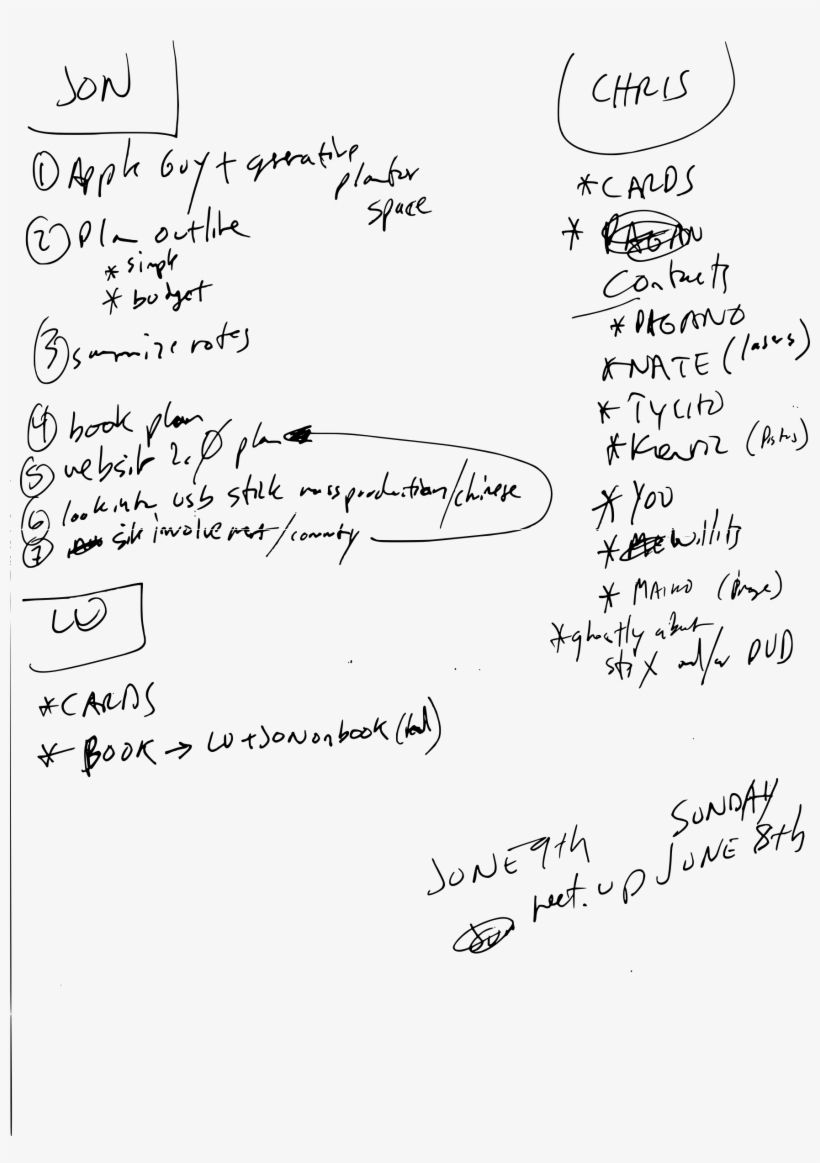 JON
① Apple Guy + generative
plan for
space
② Plan outline
* simple
* budget
③ summize notes
④ book plan
⑤ website 2.0 plan
⑥ look into usb stick mass production/chinese
⑦ involvement/
LU
* CARDS
* BOOK → LU + JON on book
CHRIS
* CARDS
*
Contacts
* PAGANO
* NATE (lasers)
* TYCITO
*
* YOU
* Willits
*
* ghostly about
and/or DVD
SUNDAY
JUNE 9th
meet up JUNE 8th